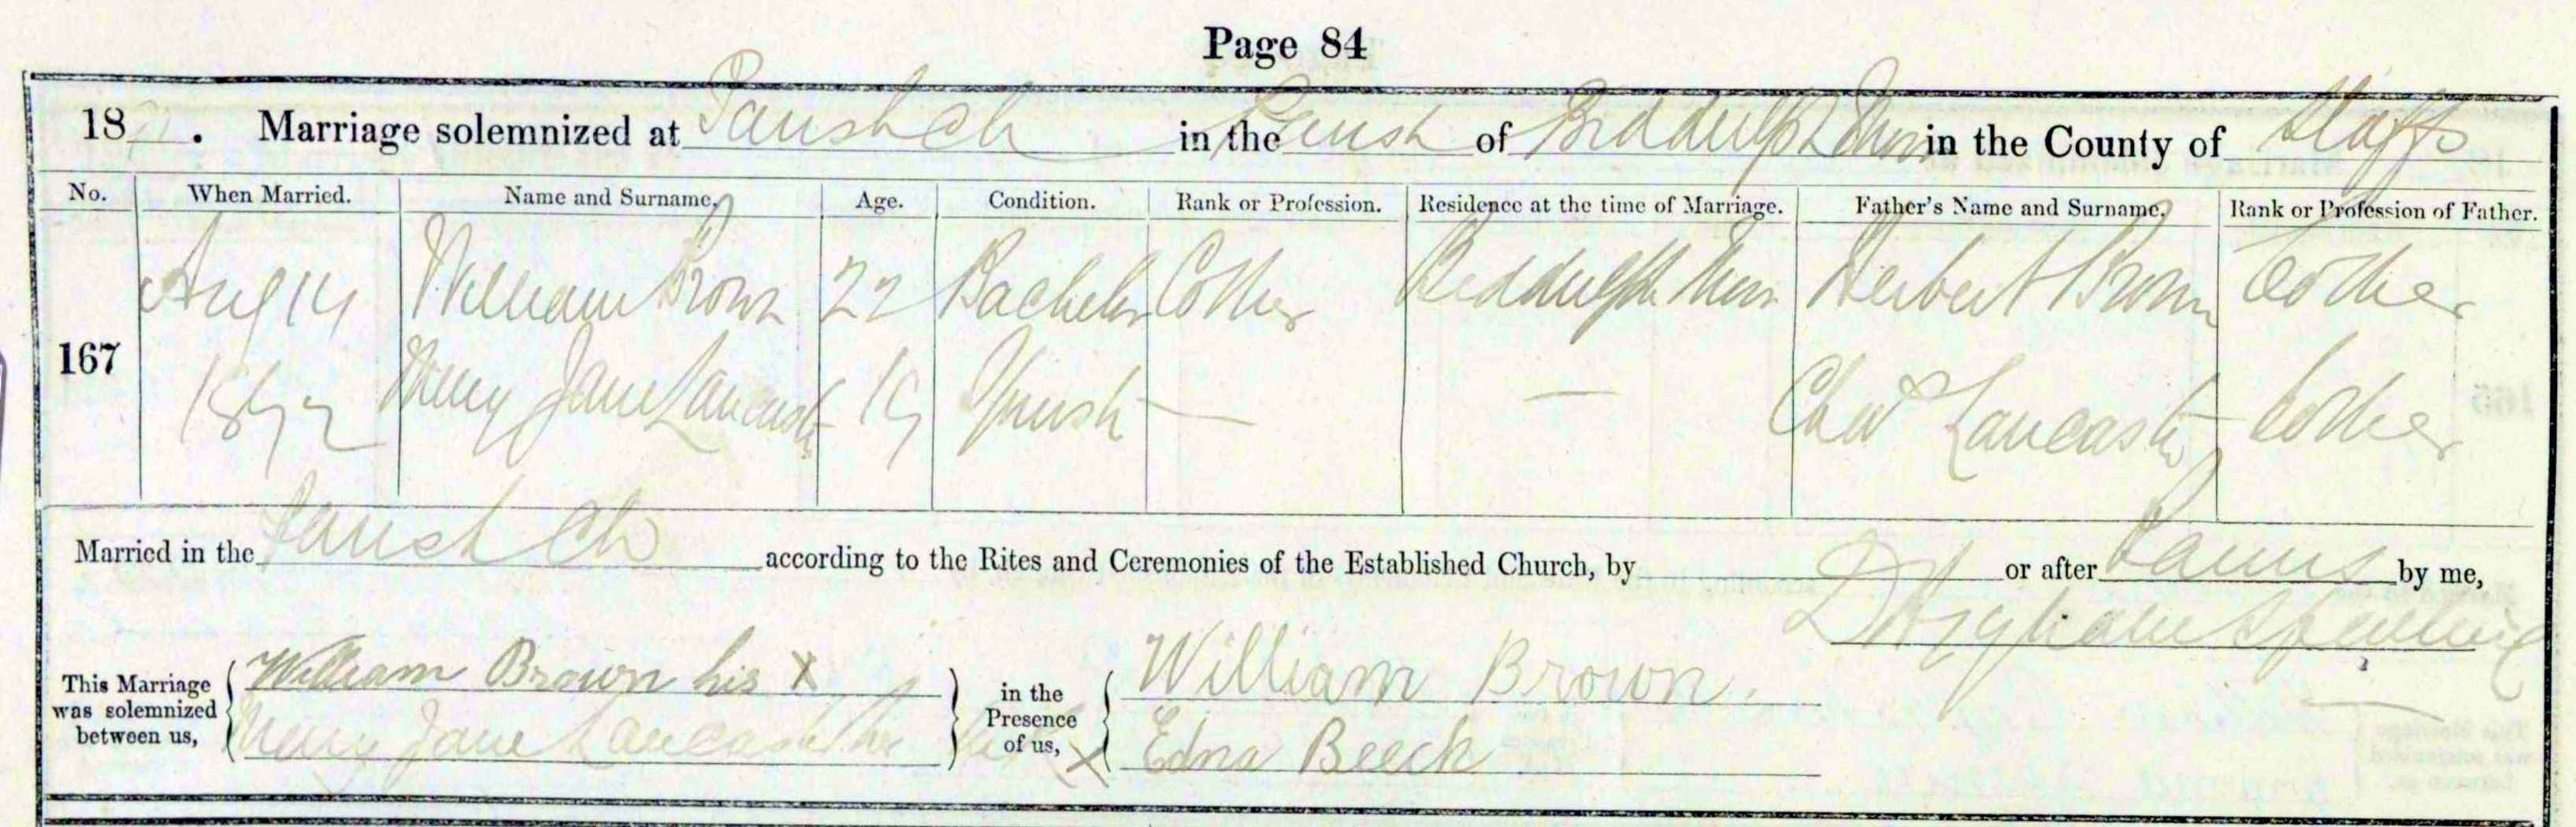 Page 84
18 . Marriage solemnized at Parish Ch in the Parish of Biddulph Moor in the County of Staffs
No. When Married. Name and Surname. Age. Condition. Rank or Profession. Residence at the time of Marriage. Father's Name and Surname. Rank or Profession of Father.
167 Aug 14 William Brown 22 Bachelor Collier Biddulph Moor Herbert Brown Collier
Mary Jane Lancaster 19 — — Chas Lancaster Collier
Married in the Parish Ch according to the Rites and Ceremonies of the Established Church, by or after Banns by me,
This Marriage was solemnized between us,
William Brown his X
Mary Jane Lancaster her X
in the Presence of us,
William Brown.
Edna Beech